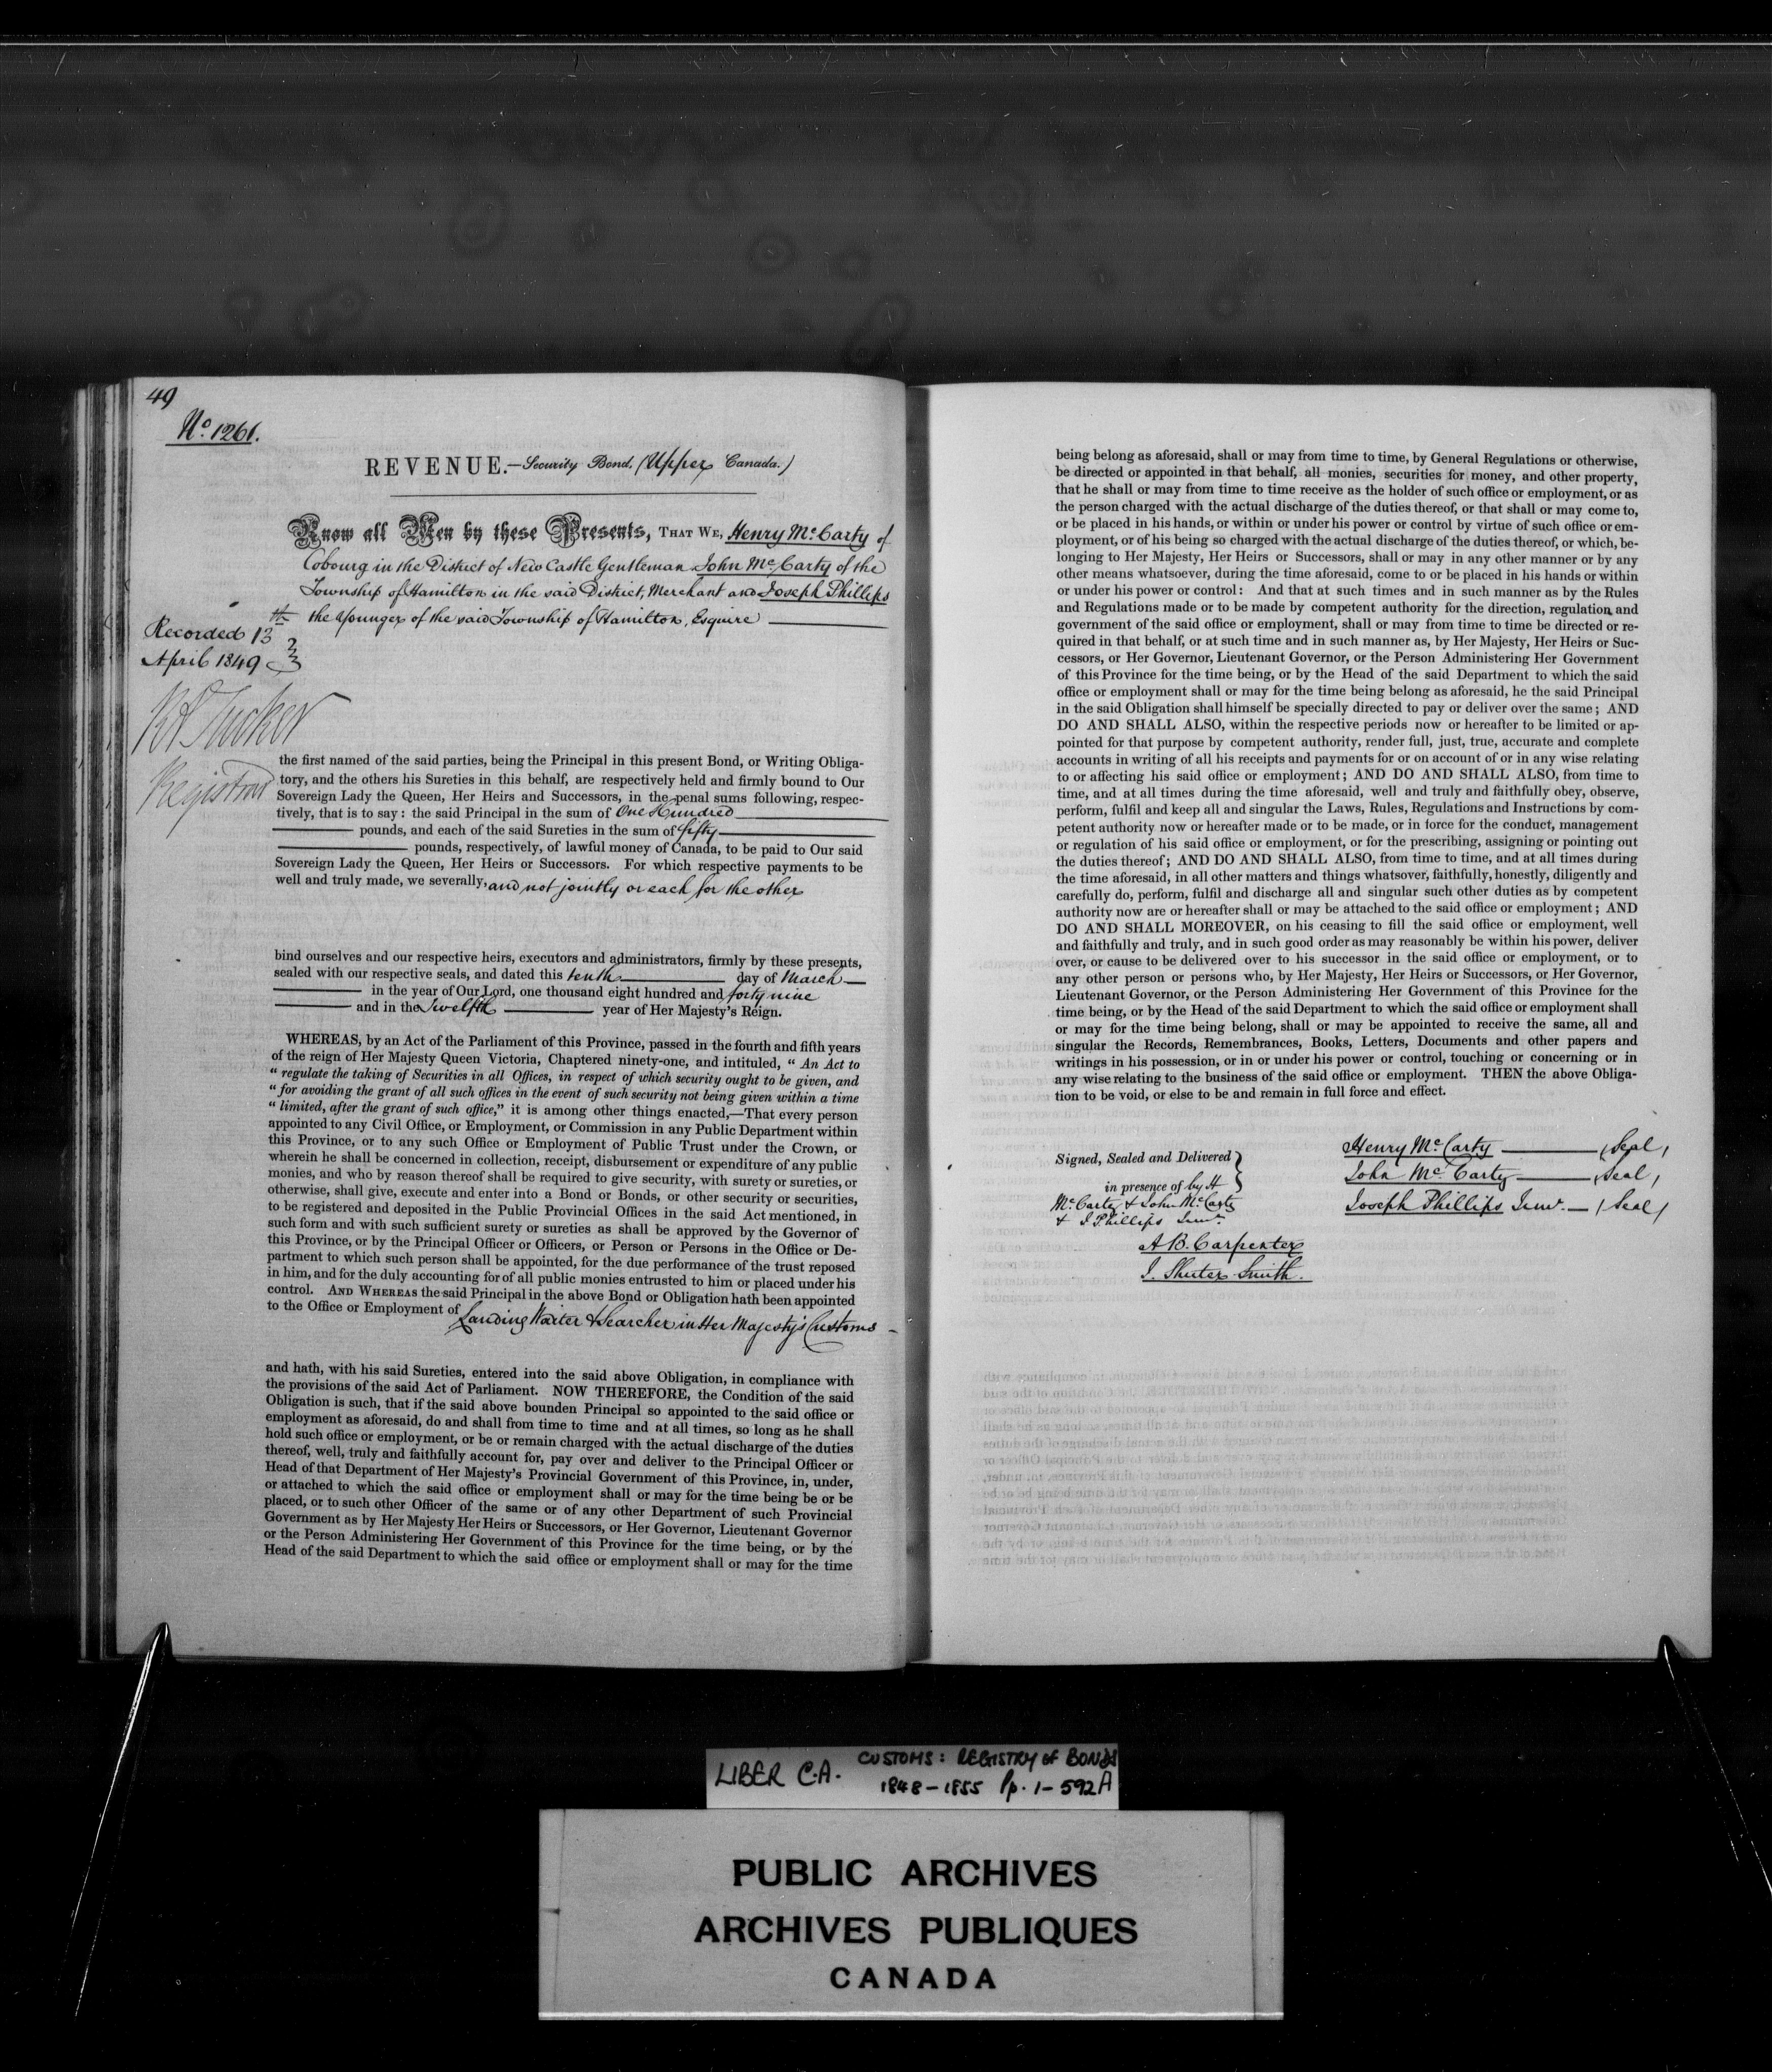 49
No. 1261.
REVENUE.—Security Bond. (Upper Canada.)
Know all Men by these Presents, THAT WE, Henry McCarty of
Cobourg in the District of New Castle Gentleman John McCarty of the
Township of Hamilton in the said District, Merchant and Joseph Phillips
the Younger of the said Township of Hamilton, Esquire
Recorded 13th
April 1849
RA Tucker
Registrar
the first named of the said parties, being the Principal in this present Bond, or Writing Obliga-
tory, and the others his Sureties in this behalf, are respectively held and firmly bound to Our
Sovereign Lady the Queen, Her Heirs and Successors, in the penal sums following, respec-
tively, that is to say: the said Principal in the sum of One Hundred
pounds, and each of the said Sureties in the sum of fifty
pounds, respectively, of lawful money of Canada, to be paid to Our said
Sovereign Lady the Queen, Her Heirs or Successors. For which respective payments to be
well and truly made, we severally, and not jointly or each for the other
bind ourselves and our respective heirs, executors and administrators, firmly by these presents,
sealed with our respective seals, and dated this tenth day of March
in the year of Our Lord, one thousand eight hundred and forty nine
and in the Twelfth year of Her Majesty's Reign.
WHEREAS, by an Act of the Parliament of this Province, passed in the fourth and fifth years
of the reign of Her Majesty Queen Victoria, Chaptered ninety-one, and intituled, " An Act to
" regulate the taking of Securities in all Offices, in respect of which security ought to be given, and
" for avoiding the grant of all such offices in the event of such security not being given within a time
" limited, after the grant of such office," it is among other things enacted,—That every person
appointed to any Civil Office, or Employment, or Commission in any Public Department within
this Province, or to any such Office or Employment of Public Trust under the Crown, or
wherein he shall be concerned in collection, receipt, disbursement or expenditure of any public
monies, and who by reason thereof shall be required to give security, with surety or sureties, or
otherwise, shall give, execute and enter into a Bond or Bonds, or other security or securities,
to be registered and deposited in the Public Provincial Offices in the said Act mentioned, in
such form and with such sufficient surety or sureties as shall be approved by the Governor of
this Province, or by the Principal Officer or Officers, or Person or Persons in the Office or De-
partment to which such person shall be appointed, for the due performance of the trust reposed
in him, and for the duly accounting for of all public monies entrusted to him or placed under his
control. AND WHEREAS the said Principal in the above Bond or Obligation hath been appointed
to the Office or Employment of Landing Waiter & Searcher in Her Majesty's Customs
and hath, with his said Sureties, entered into the said above Obligation, in compliance with
the provisions of the said Act of Parliament. NOW THEREFORE, the Condition of the said
Obligation is such, that if the said above bounden Principal so appointed to the said office or
employment as aforesaid, do and shall from time to time and at all times, so long as he shall
hold such office or employment, or be or remain charged with the actual discharge of the duties
thereof, well, truly and faithfully account for, pay over and deliver to the Principal Officer or
Head of that Department of Her Majesty's Provincial Government of this Province, in, under,
or attached to which the said office or employment shall or may for the time being be or be
placed, or to such other Officer of the same or of any other Department of such Provincial
Government as by Her Majesty Her Heirs or Successors, or Her Governor, Lieutenant Governor
or the Person Administering Her Government of this Province for the time being, or by the
Head of the said Department to which the said office or employment shall or may for the time
being belong as aforesaid, shall or may from time to time, by General Regulations or otherwise,
be directed or appointed in that behalf, all monies, securities for money, and other property,
that he shall or may from time to time receive as the holder of such office or employment, or as
the person charged with the actual discharge of the duties thereof, or that shall or may come to,
or be placed in his hands, or within or under his power or control by virtue of such office or em-
ployment, or of his being so charged with the actual discharge of the duties thereof, or which, be-
longing to Her Majesty, Her Heirs or Successors, shall or may in any other manner or by any
other means whatsoever, during the time aforesaid, come to or be placed in his hands or within
or under his power or control: And that at such times and in such manner as by the Rules
and Regulations made or to be made by competent authority for the direction, regulation and
government of the said office or employment, shall or may from time to time be directed or re-
quired in that behalf, or at such time and in such manner as, by Her Majesty, Her Heirs or Suc-
cessors, or Her Governor, Lieutenant Governor, or the Person Administering Her Government
of this Province for the time being, or by the Head of the said Department to which the said
office or employment shall or may for the time being belong as aforesaid, he the said Principal
in the said Obligation shall himself be specially directed to pay or deliver over the same; AND
DO AND SHALL ALSO, within the respective periods now or hereafter to be limited or ap-
pointed for that purpose by competent authority, render full, just, true, accurate and complete
accounts in writing of all his receipts and payments for or on account of or in any wise relating
to or affecting his said office or employment; AND DO AND SHALL ALSO, from time to
time, and at all times during the time aforesaid, well and truly and faithfully obey, observe,
perform, fulfil and keep all and singular the Laws, Rules, Regulations and Instructions by com-
petent authority now or hereafter made or to be made, or in force for the conduct, management
or regulation of his said office or employment, or for the prescribing, assigning or pointing out
the duties thereof; AND DO AND SHALL ALSO, from time to time, and at all times during
the time aforesaid, in all other matters and things whatsover, faithfully, honestly, diligently and
carefully do, perform, fulfil and discharge all and singular such other duties as by competent
authority now are or hereafter shall or may be attached to the said office or employment; AND
DO AND SHALL MOREOVER, on his ceasing to fill the said office or employment, well
and faithfully and truly, and in such good order as may reasonably be within his power, deliver
over, or cause to be delivered over to his successor in the said office or employment, or to
any other person or persons who, by Her Majesty, Her Heirs or Successors, or Her Governor,
Lieutenant Governor, or the Person Administering Her Government of this Province for the
time being, or by the Head of the said Department to which the said office or employment shall
or may for the time being belong, shall or may be appointed to receive the same, all and
singular the Records, Remembrances, Books, Letters, Documents and other papers and
writings in his possession, or in or under his power or control, touching or concerning or in
any wise relating to the business of the said office or employment. THEN the above Obliga-
tion to be void, or else to be and remain in full force and effect.
Signed, Sealed and Delivered
in presence of by H
McCarty & John McCarty
& J Phillips Junr.
A B. Carpenter
J. Shuter Smith.
Henry McCarty (Seal)
John McCarty (Seal)
Joseph Phillips Junr. (Seal)
LIBER C.A. CUSTOMS: REGISTRY OF BONDS
1848-1855 Pp. 1-592A
PUBLIC ARCHIVES
ARCHIVES PUBLIQUES
CANADA